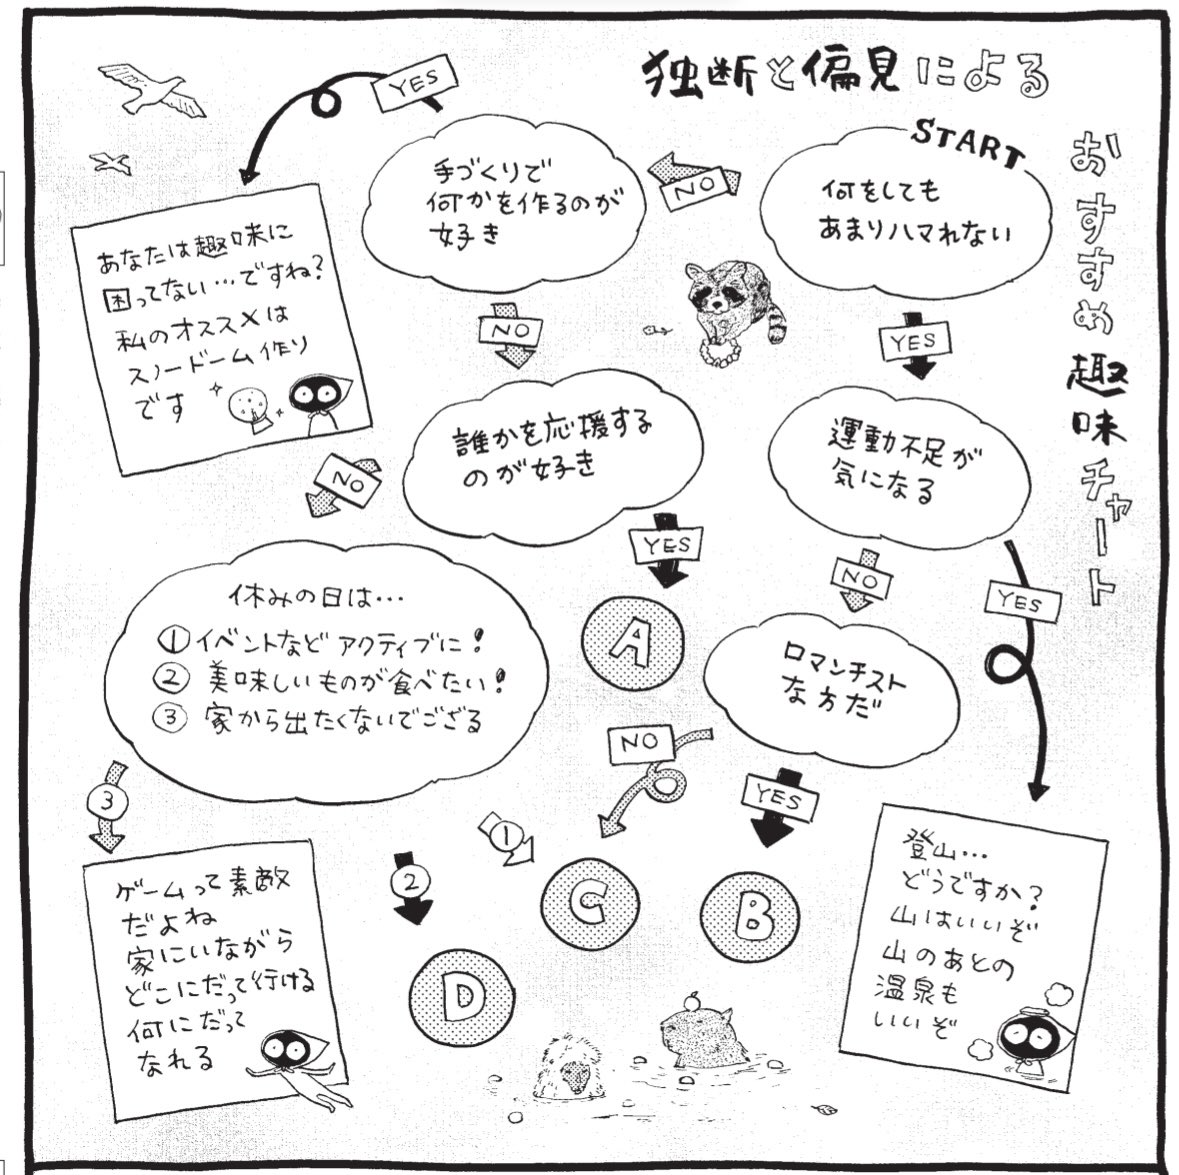 独断と偏見による
おすすめ趣味チャート
START
何をしても
あまりハマれない
NO
YES
手づくりで
何かを作るのが
好き
YES
あなたは趣味に
困ってない…ですね?
私のオススメは
スノードーム作り
です
NO
誰かを応援する
のが好き
NO
YES
A
運動不足が
気になる
NO
YES
休みの日は…
①イベントなどアクティブに!
②美味しいものが食べたい!
③家から出たくないでござる
ロマンチスト
な方だ
NO
YES
③
①
②
C
B
D
ゲームって素敵
だよね
家にいながら
どこにだって行ける
何にだって
なれる
登山…
どうですか?
山はいいぞ
山のあとの
温泉も
いいぞ